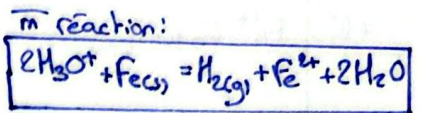 m̅ réaction:
2H₃O⁺ + Fe(s) = H₂(g) + Fe²⁺ + 2H₂O